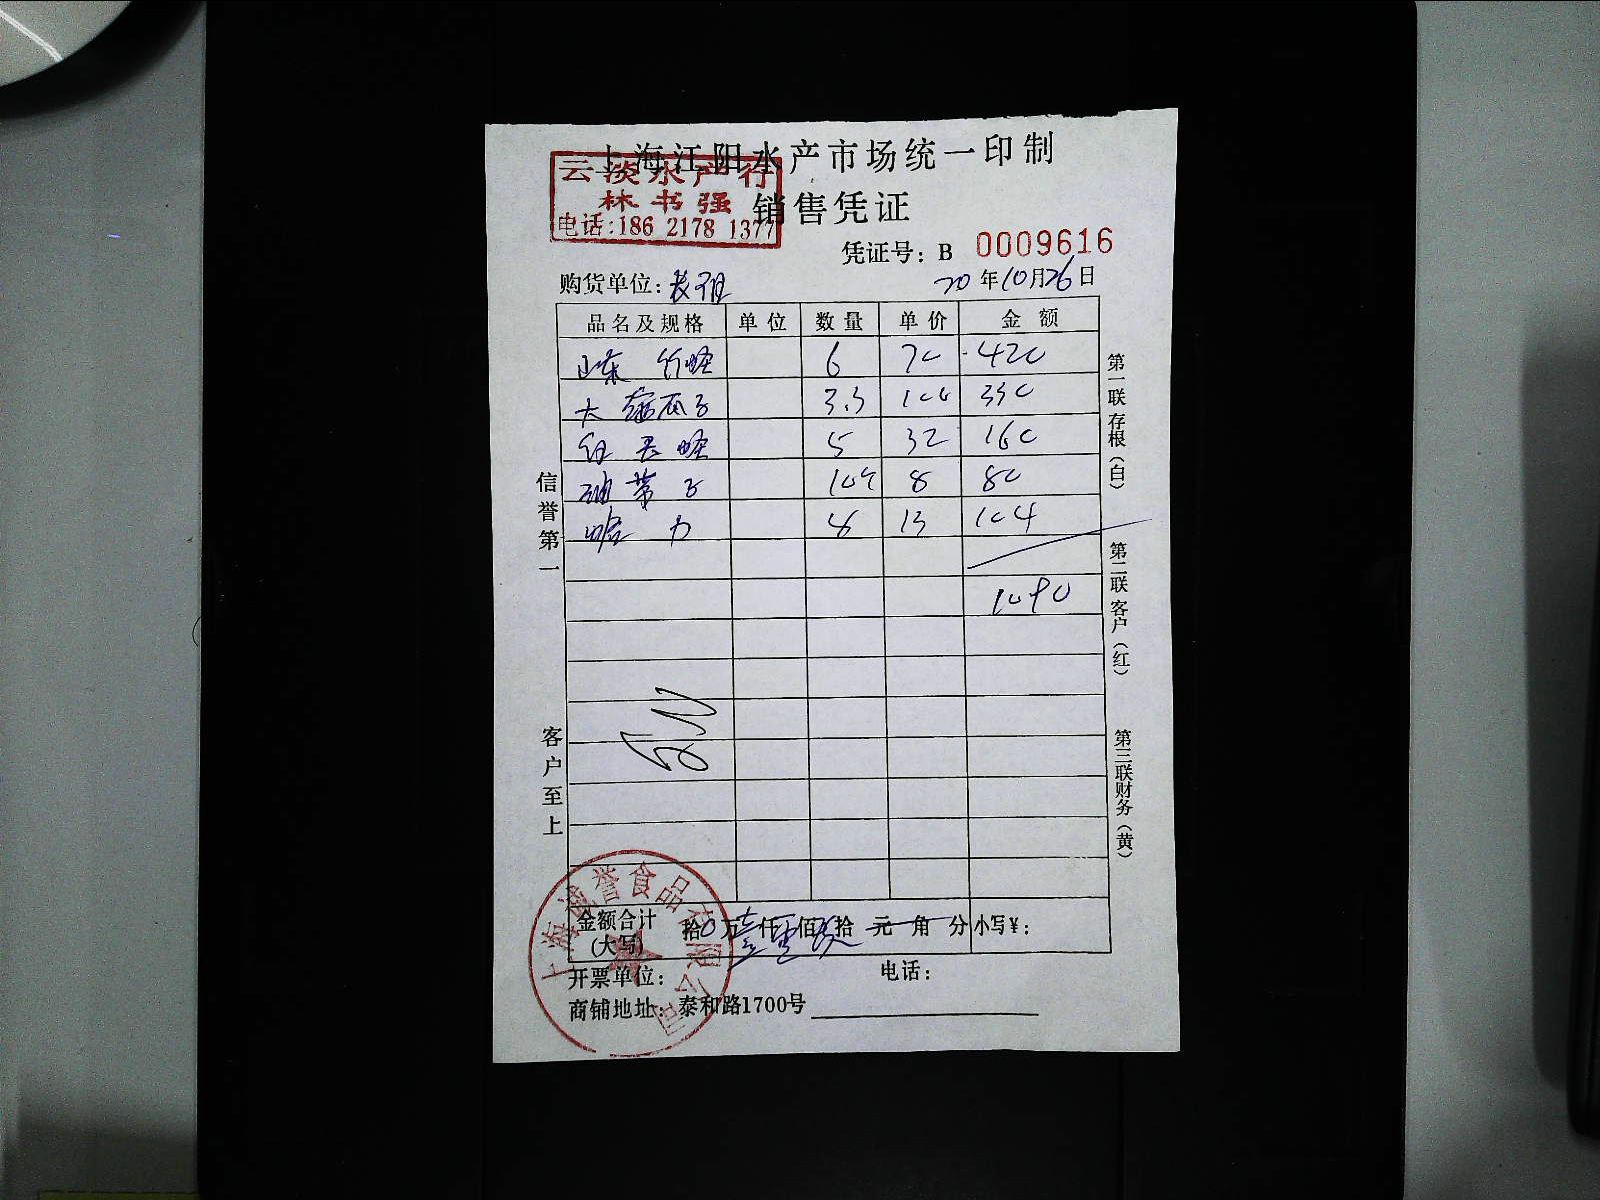 上海江阳水产市场统一印制
云淡水产行
林书强
电话:186 2178 1377
销售凭证
凭证号: B 0009616
购货单位:
20年10月26日
品名及规格 单位 数量 单价 金额
山东 竹蛏 6 70 420
大 3.3 100 330
红 蛏 5 32 160
油带子 10个 8 80
哈 8 13 104
1090
信誉第一
客户至上
第一联存根(白)
第二联客户(红)
第三联财务(黄)
金额合计(大写) 拾 万 仟 佰 拾 元 角 分 小写¥:
开票单位: 电话:
商铺地址: 泰和路1700号
上海诚誉食品有限公司